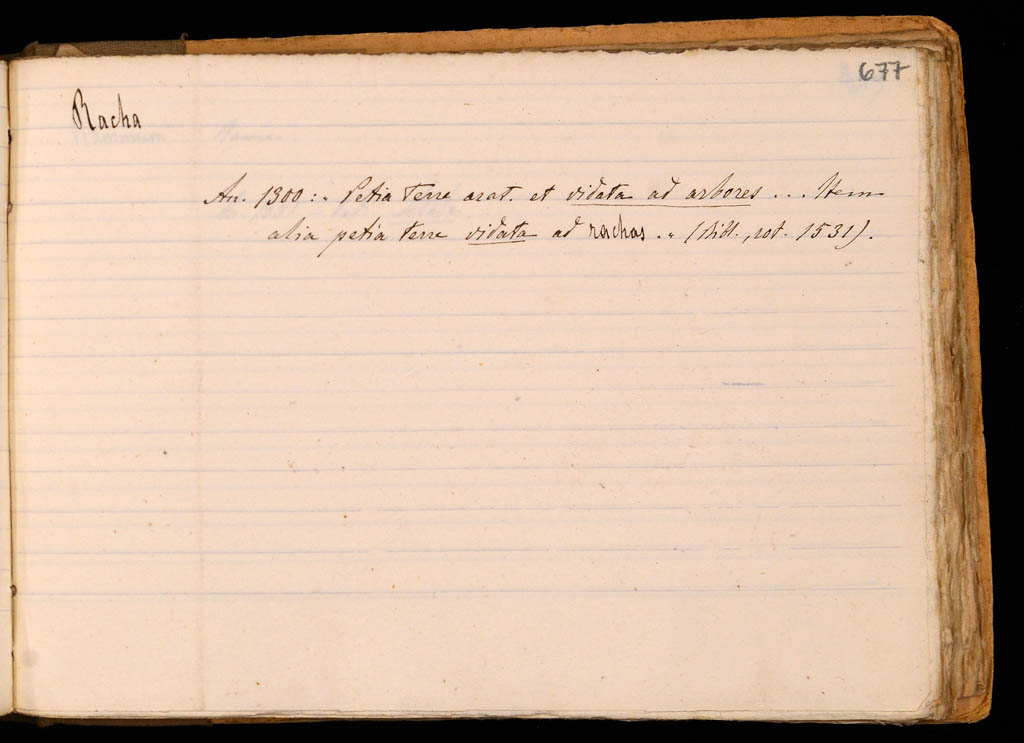 677
Racha
An. 1300 : „ Petia terre arat. et vidata ad arbores . . . Item
alia petia terre vidata ad rachas . „ ( , rot. 1531).